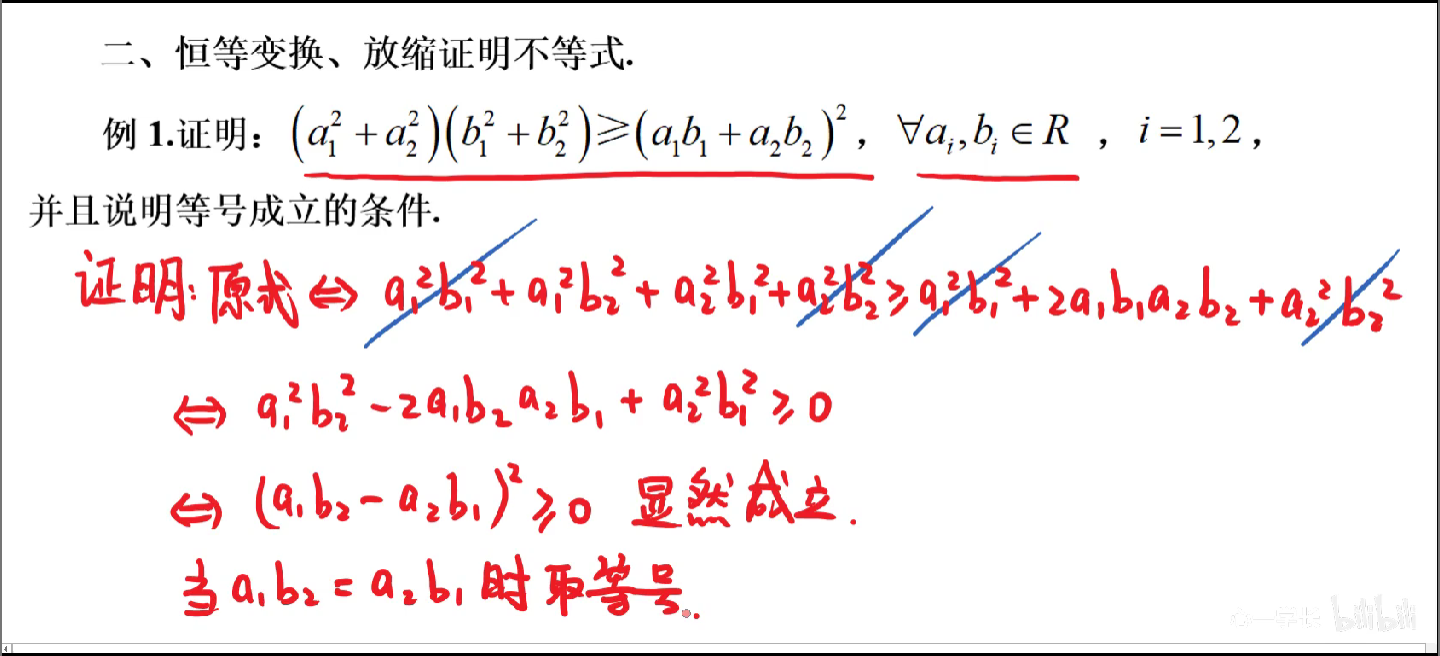 二、恒等变换、放缩证明不等式.
例 1.证明：(a₁²+a₂²)(b₁²+b₂²)≥(a₁b₁+a₂b₂)²，∀aᵢ,bᵢ∈R，i=1,2，
并且说明等号成立的条件.
证明:原式⇔ a₁²b₁²+a₁²b₂²+a₂²b₁²+a₂²b₂²≥a₁²b₁²+2a₁b₁a₂b₂+a₂²b₂²
⇔ a₁²b₂²-2a₁b₂a₂b₁+a₂²b₁²≥0
⇔ (a₁b₂-a₂b₁)²≥0 显然成立.
当a₁b₂=a₂b₁时取等号.
心一学长 bilibili